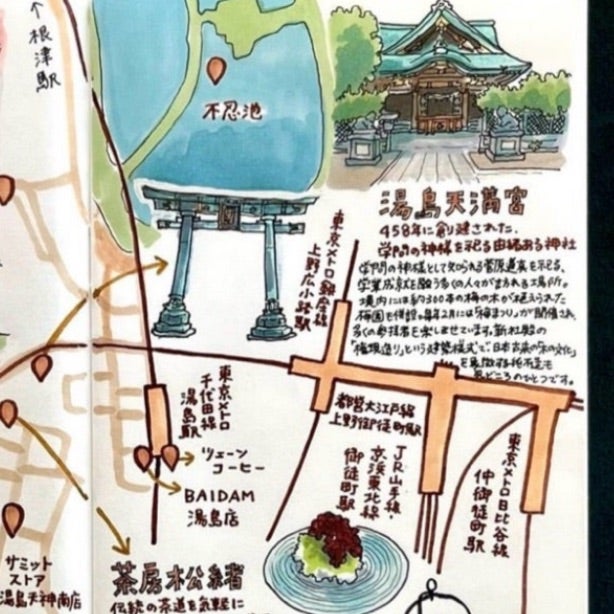 ↑根津駅
不忍池
湯島天満宮
458年に創建された、
学問の神様を祀る由緒ある神社
学問の神様として知られる菅原道真を祀る、
学業成就を願う多くの人々が訪れる場所。
境内には約300本の梅の木が植えられた
梅園を併設。毎年2月には「梅まつり」が開催され、
多くの参拝者を楽しませています。新社殿の
「権現造り」という建築様式で、日本古来の「木の文化」
を
見どころのひとつです。
東京メトロ銀座線
上野広小路駅
都営大江戸線
上野御徒町駅
東京メトロ
千代田線
湯島駅
ツェーン
コーヒー
BAIDAM
湯島店
JR山手線・
京浜東北線
御徒町駅
東京メトロ日比谷線
仲御徒町駅
サミット
ストア
湯島天神南店
茶房松緒
伝統の茶道を気軽に